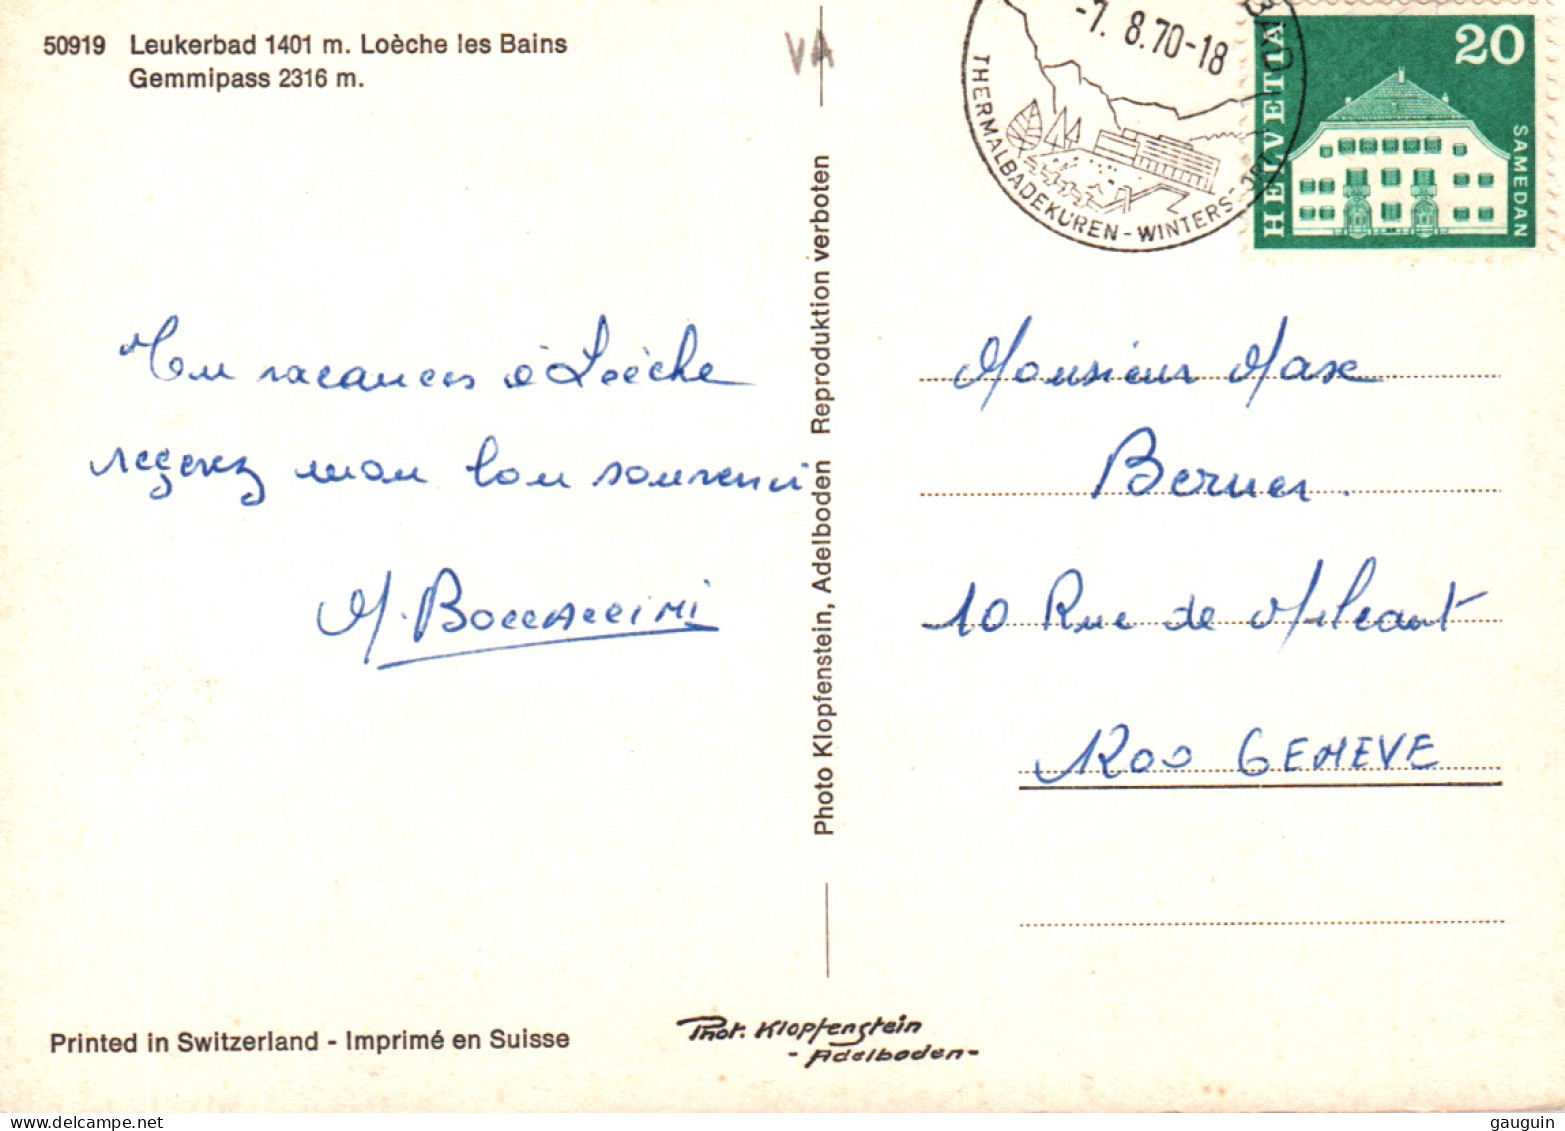 50919 Leukerbad 1401 m. Loèche les Bains
Gemmipass 2316 m.
VA
-7. 8.70-18
BAD
THERMALBADEKUREN - WINTERSPORT
HELVETIA
20
SAMEDAN
En vacances à Loèche
recevez mon bon souvenir
M. Boccaccini
Photo Klopfenstein, Adelboden Reproduktion verboten
Monsieur Max
Berner.
10 Rue de
1200 GENEVE
Printed in Switzerland - Imprimé en Suisse
Phot. Klopfenstein
- Adelboden -
gauguin